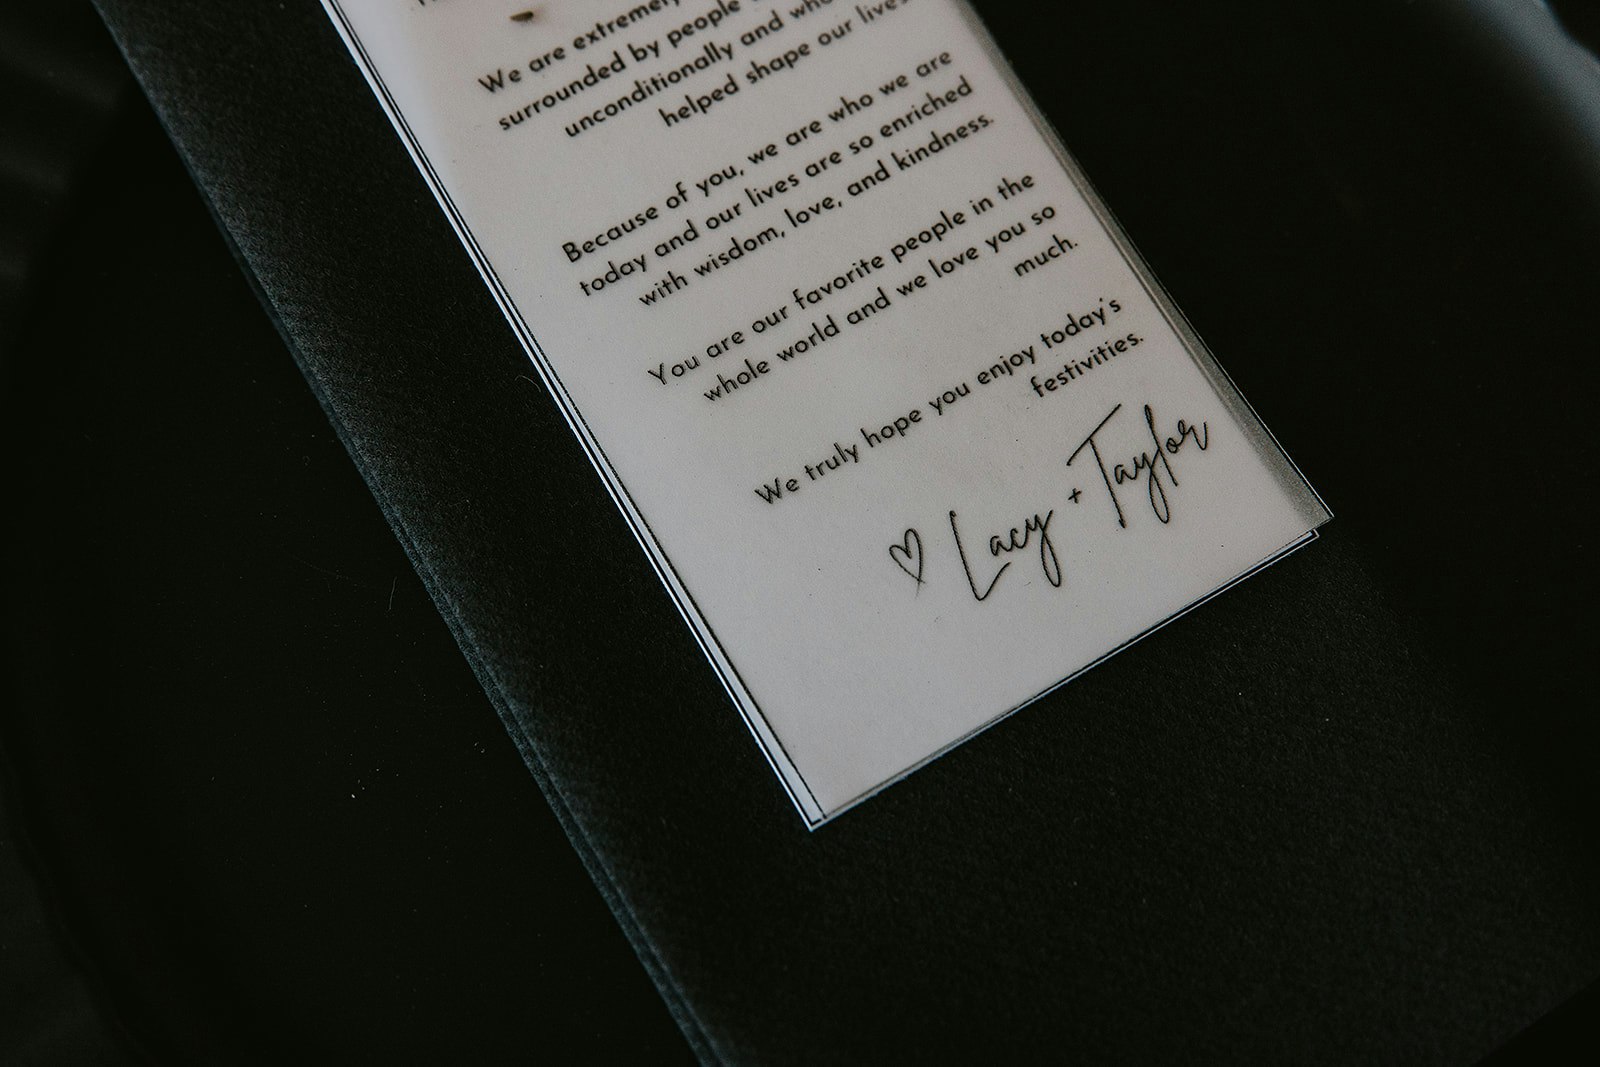 We are extremely
surrounded by people
unconditionally and who
helped shape our lives
Because of you, we are who we are
today and our lives are so enriched
with wisdom, love, and kindness.
You are our favorite people in the
whole world and we love you so
much.
We truly hope you enjoy today's
festivities.
♡ Lacy + Taylor